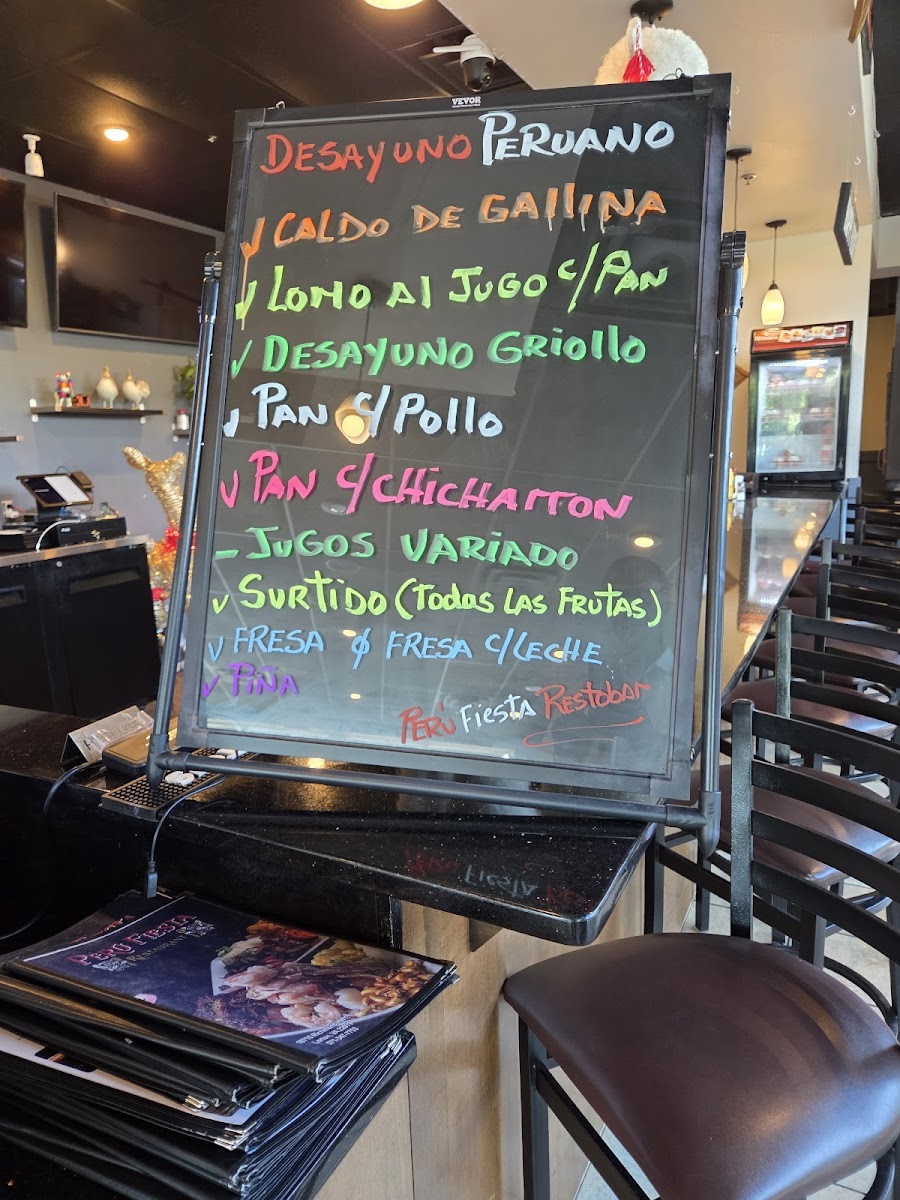 VEVOR
DESAYUNO PERUANO
✓ CALDO DE GALLINA
✓ LOMO Al JUGO C/PAN
✓ DESAYUNO GRIOllO
✓ PAN C/Pollo
✓ PAN C/CHICHARRON
- JUGOS VARIADO
✓ SURTIDO (TODAS LAS FRUTAS)
✓ FRESA Ó FRESA C/LECHE
✓ PIÑA
PERÚ FIESTA RESTOBAR
PERÚ FIESTA
RESTAURANT